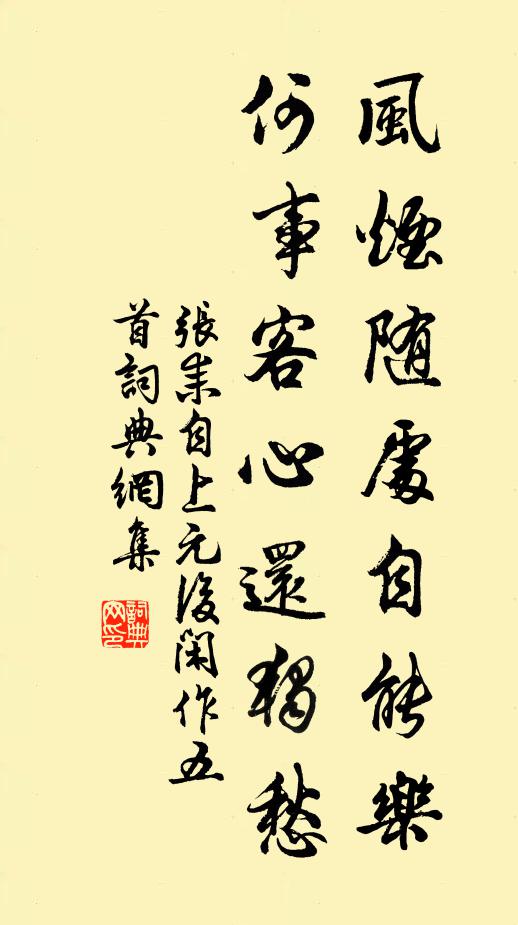 風煙随處自能樂
何事客心還獨愁
張耒自上元後閑作五
首詞典網集
詞典网印